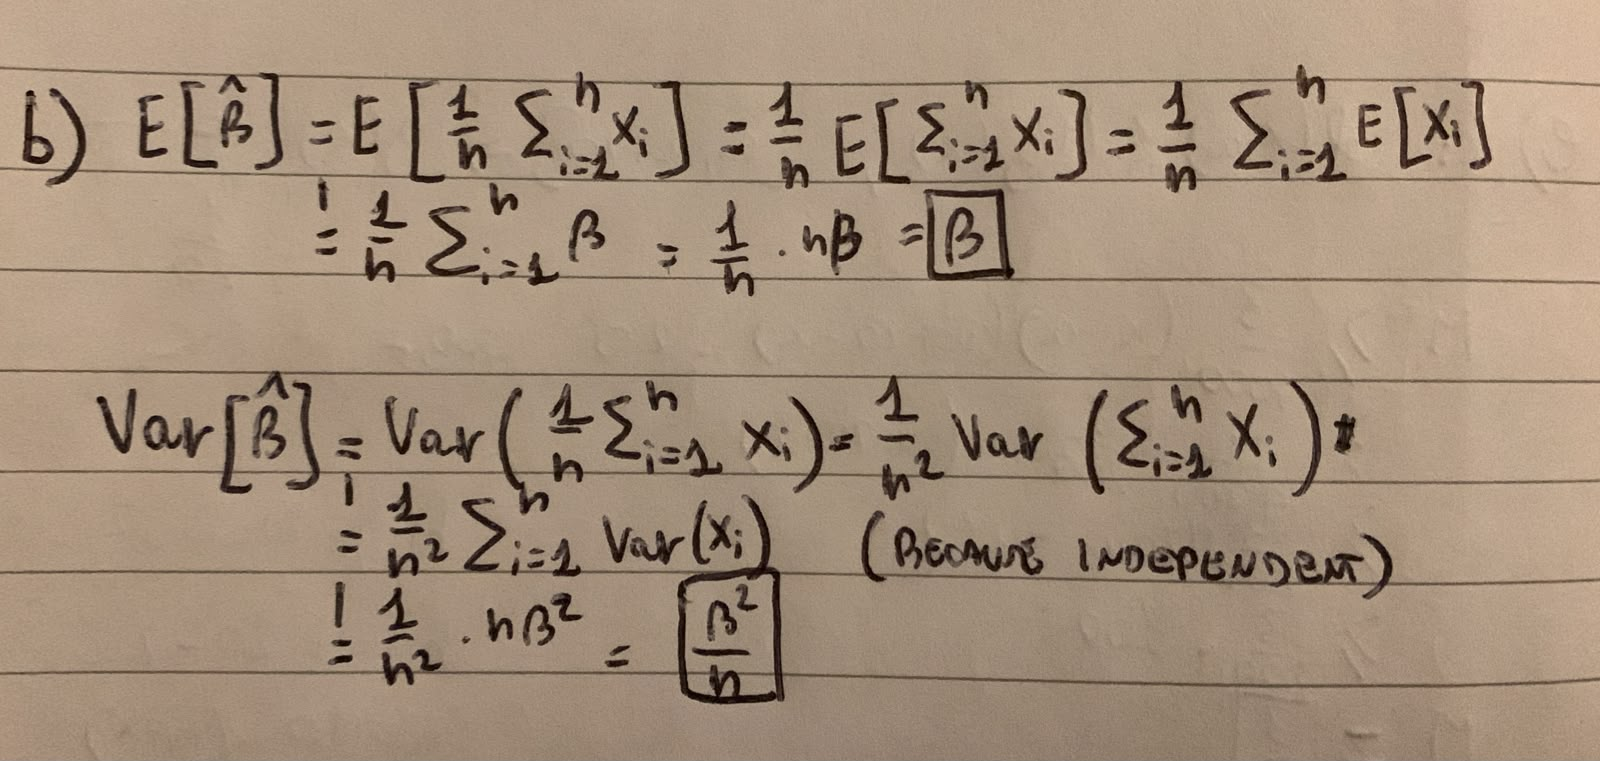 b) E[β̂] = E[1/n Σᵢ₌₁ⁿ Xᵢ] = 1/n E[Σᵢ₌₁ⁿ Xᵢ] = 1/n Σᵢ₌₁ⁿ E[Xᵢ]
! = 1/n Σᵢ₌₁ⁿ β = 1/n · nβ = β
Var[β̂] = Var(1/n Σᵢ₌₁ⁿ Xᵢ) = 1/n² Var (Σᵢ₌₁ⁿ Xᵢ)
! = 1/n² Σᵢ₌₁ⁿ Var(Xᵢ) (BECAUSE INDEPENDENT)
! = 1/n² · nβ² = β²/n